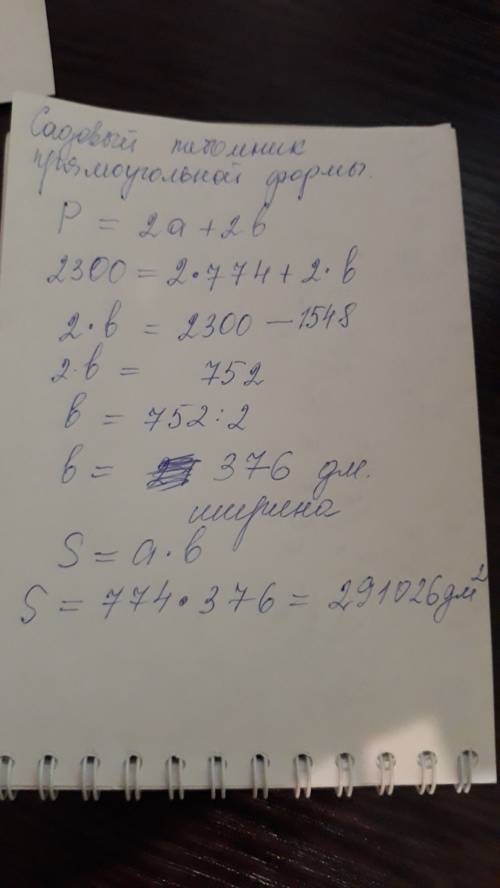 Садовый питомник
прямоугольной формы.
P = 2a + 2b
2300 = 2·774 + 2·b
2·b = 2300 – 1548
2·b = 752
b = 752:2
b = 376 дм.
ширина
S = a·b
S = 774·376 = 291026 дм²